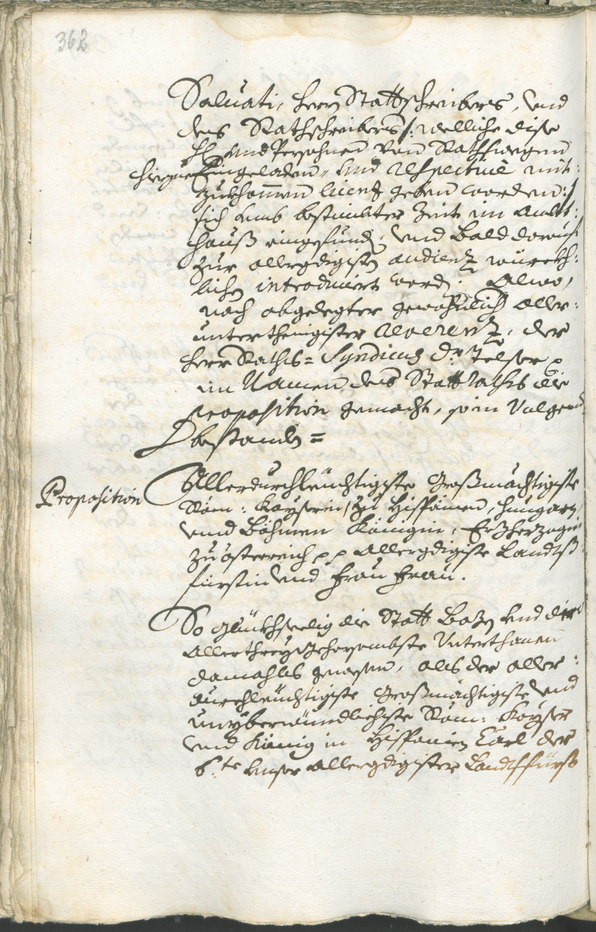 362
Saluati, Herrn Stattschreibers, und
des Rathschreibers /: welliche dise
H: und Persohnen von Raths wegen
hierzue Eingeladen, und respective mit-
zukhomen licenz geben worden :/
sich umb bestimbter Zeit im Ambts-
hauß eingefunden, und bald darauf
zur allergdigisten audienz würckh-
lichen introducirt worden. Alwo,
nach abgelegter gewohnlich aller-
unterthenigister Reverenz, der
Herr Raths= Syndicus Dr: Zelser p
im Namen des Statt Raths die
proposition gemacht, so in Volgenden
bestanden =
Proposition
Allerdurchleüchtigiste Großmächtigiste
Röm: Kayserin, zu Hispanien, Hungarn,
und Böhmen Königin, Erzherzogin
zu Österreich p p Allergdigiste Landts-
fürstin und Frau Frau.
So glückhseelig die Statt Bozen und dero
Allertreugehorsambste Unterthanen
damahls gewesen, als der aller-
durchleüchtigiste Großmächtigiste und
unyberwündlichiste Röm: Kayser
und König in Hispanien Carl der
6.te unser allergdigister Landtsfürst